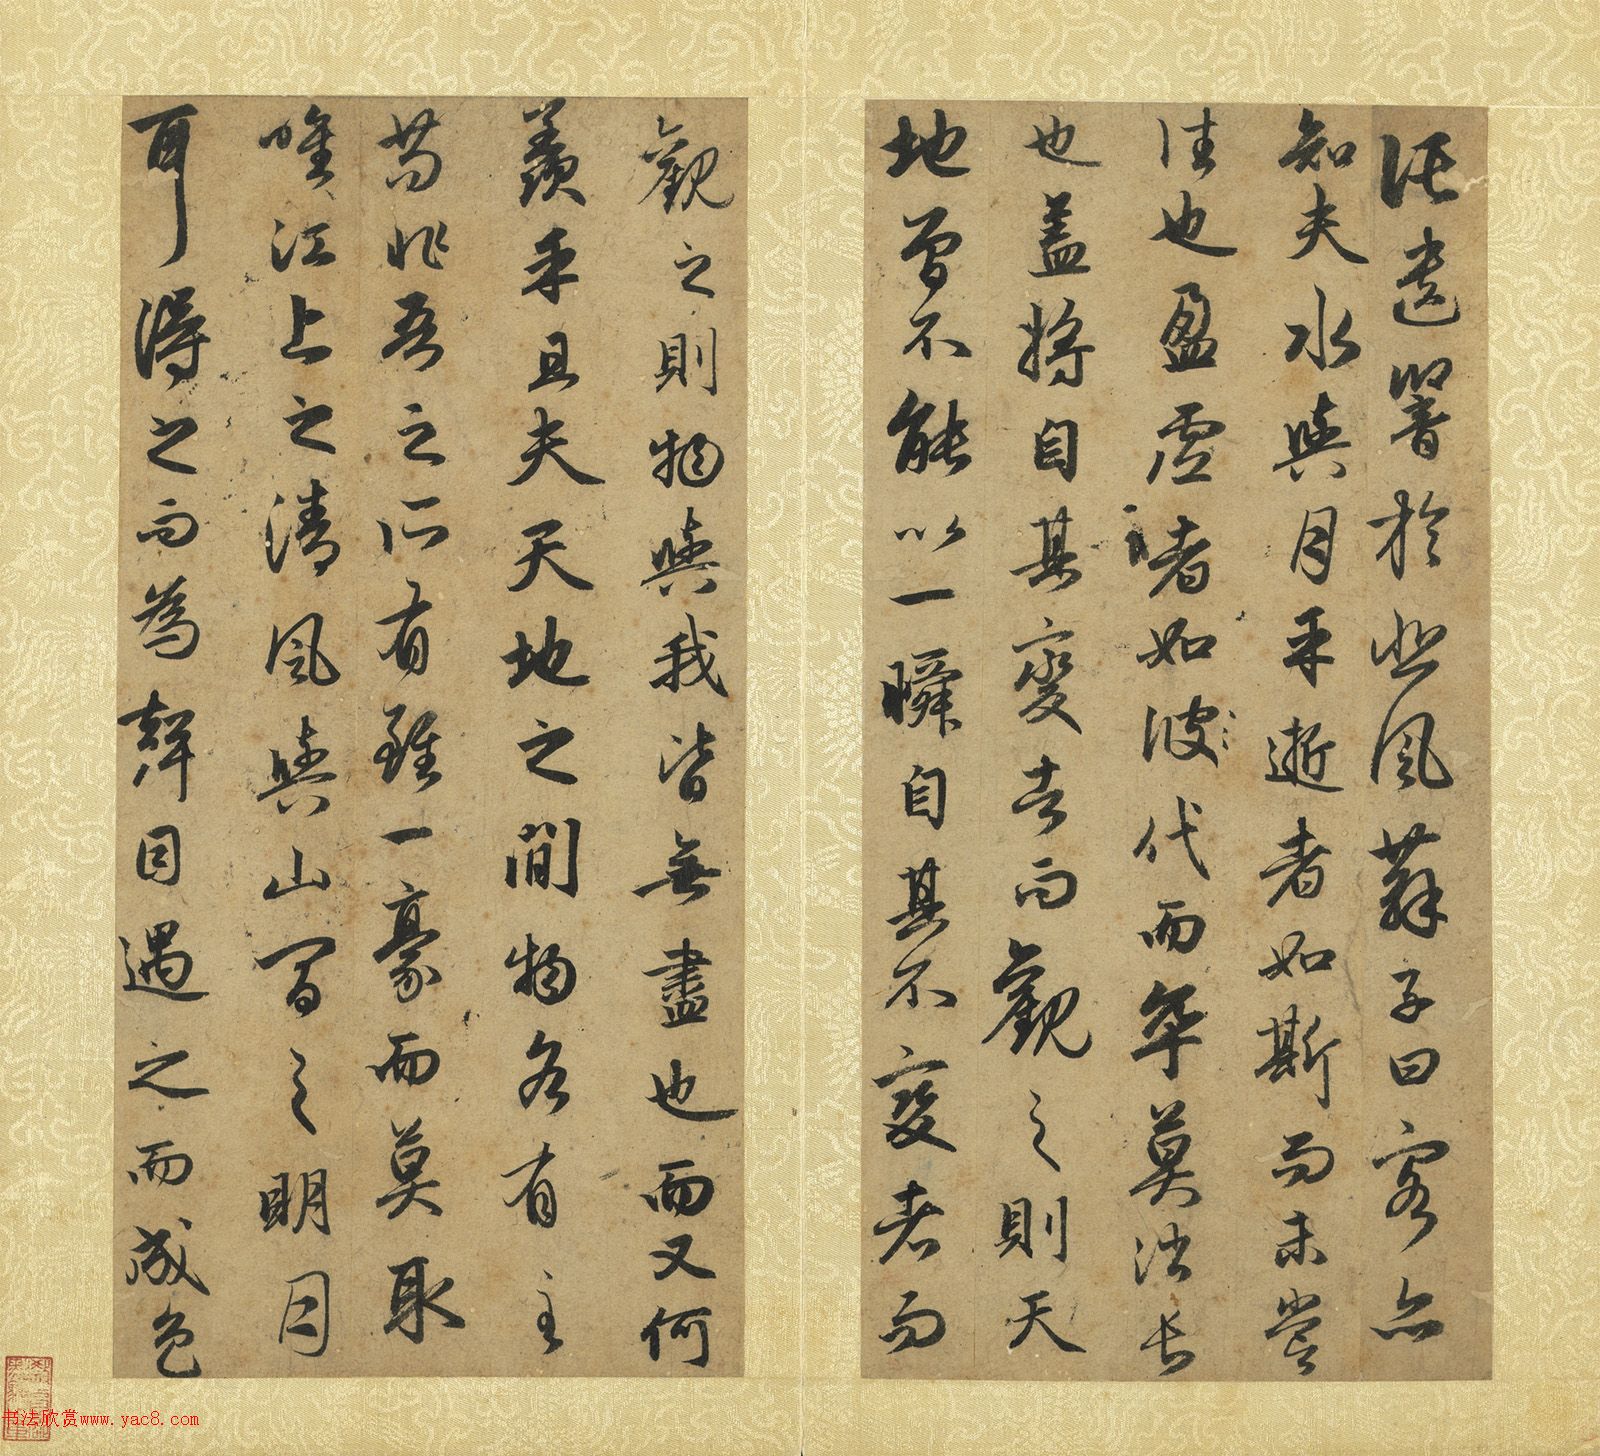 託遺響於悲風蘇子曰客亦
知夫水與月乎逝者如斯而未嘗
往也盈虛者如彼代而卒莫消長
也蓋將自其變者而觀之則天
地曾不能以一瞬自其不變者而
觀之則物與我皆無盡也而又何
羨乎且夫天地之間物各有主
苟非吾之所有雖一豪而莫取
唯江上之清風與山間之明月
耳得之而為聲目遇之而成色
书法欣赏www.yac8.com